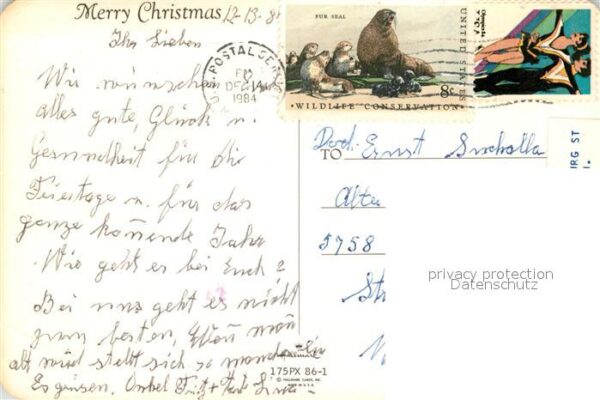 Merry Christmas 12-13-8
Ihr Lieben
Wir wünschen
alles gute, Glück u.
Gesundheit für die
Feiertage u. für das
ganze kommende Jahr
Wie geht es bei Euch?
Bei uns geht es nicht
zum besten, Wenn man
alt wird stellt sich so manches ein
Es grüssen. Onkel Fritz +
175PX 86-1
© HALLMARK CARDS, INC.
POSTAL SE
PM
DEC 14
1984
FUR SEAL
UNITED STATES
8c
WILDLIFE CONSERVATION
TO
Ernst
Alte
5758
St
IRG ST
I.
privacy protection
Datenschutz